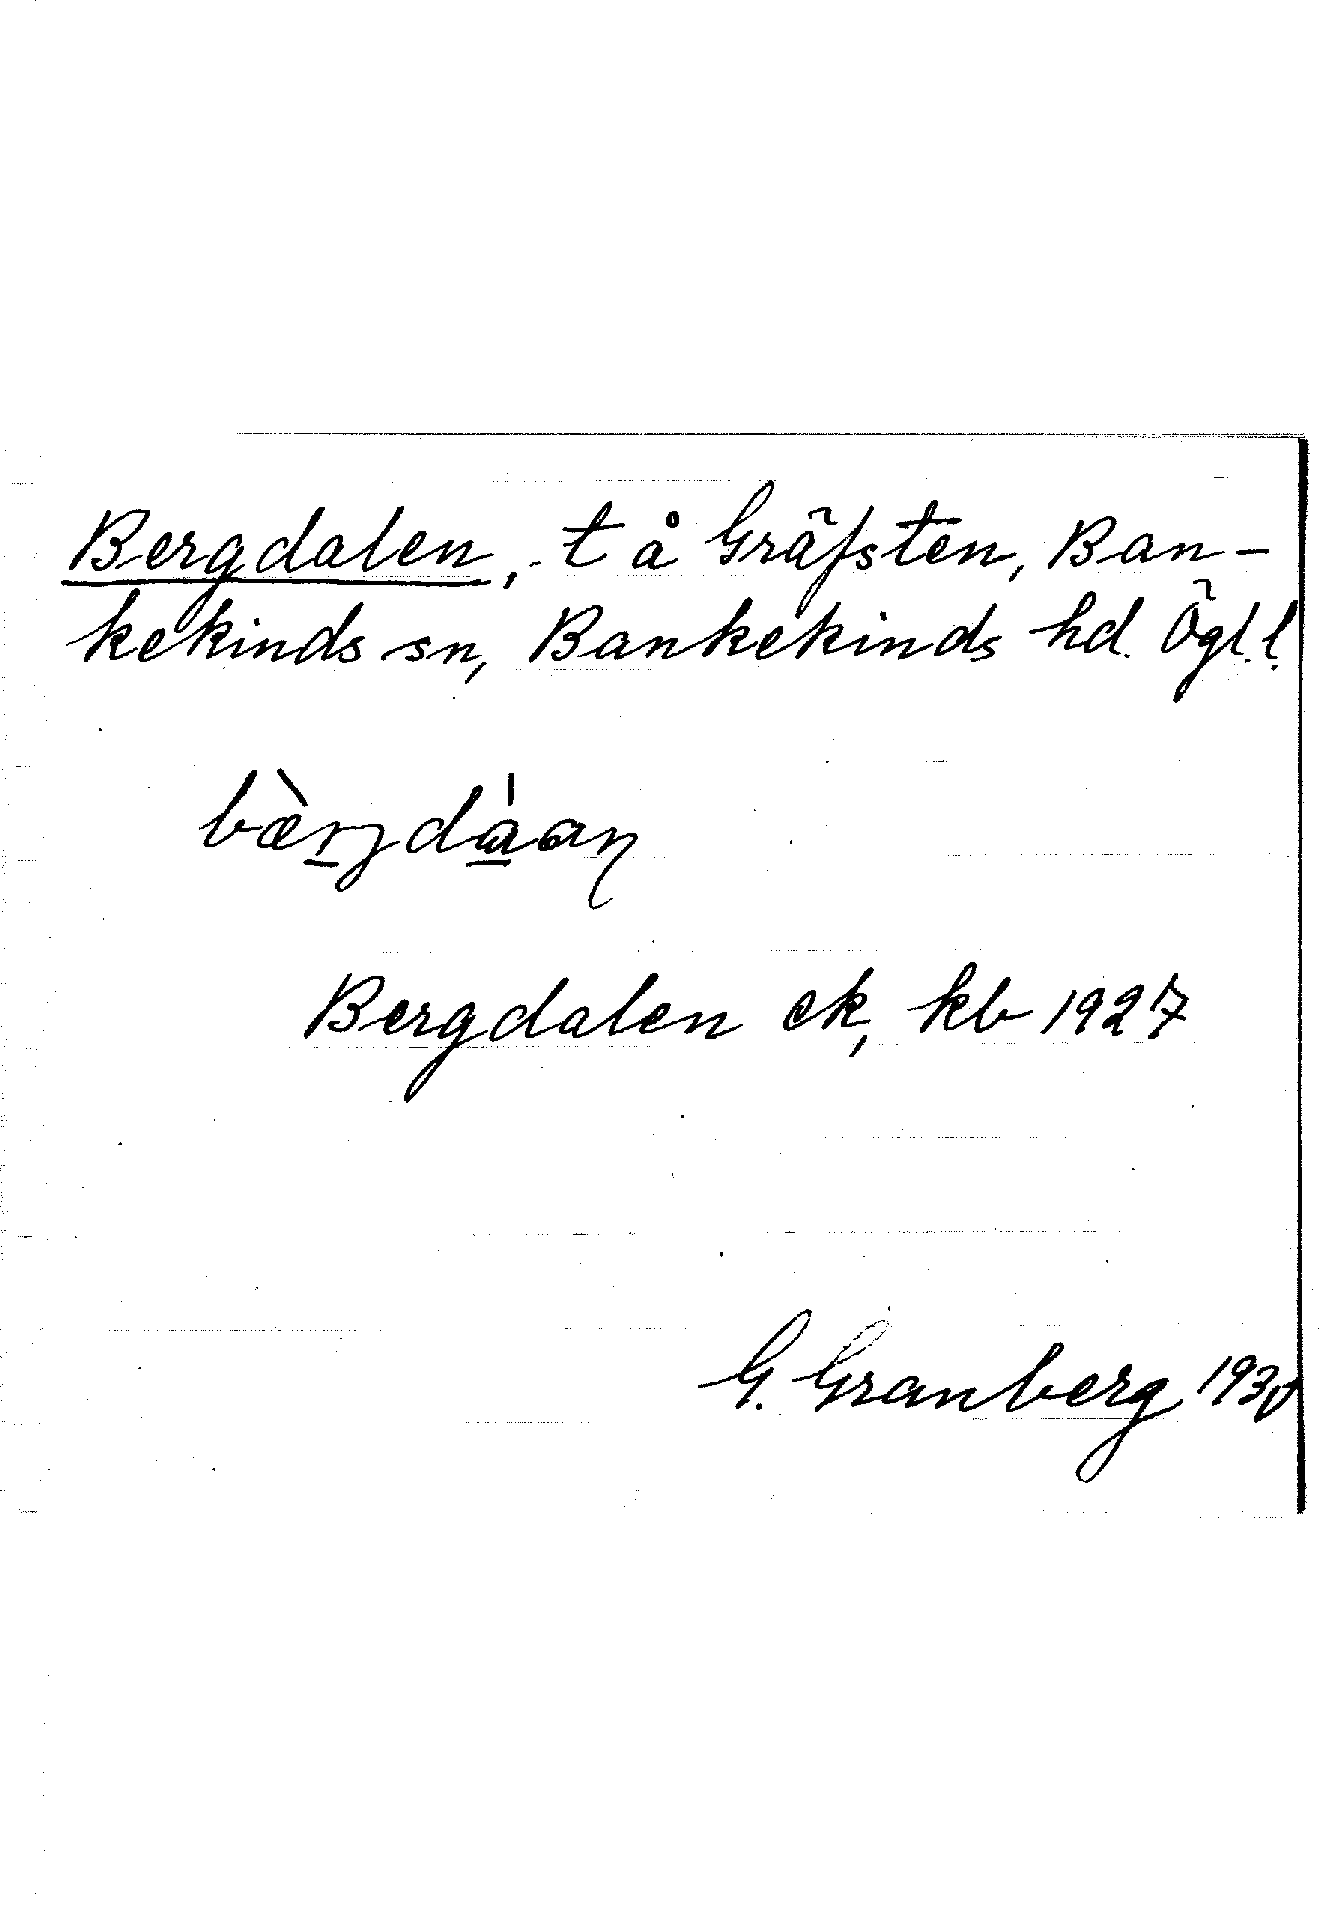 Bergdalen, t å Gräfsten, Ban-
kekinds sn, Bankekinds hd. Ögl. l.
Bergdalen ek, kb 1927
G. Granberg 1930